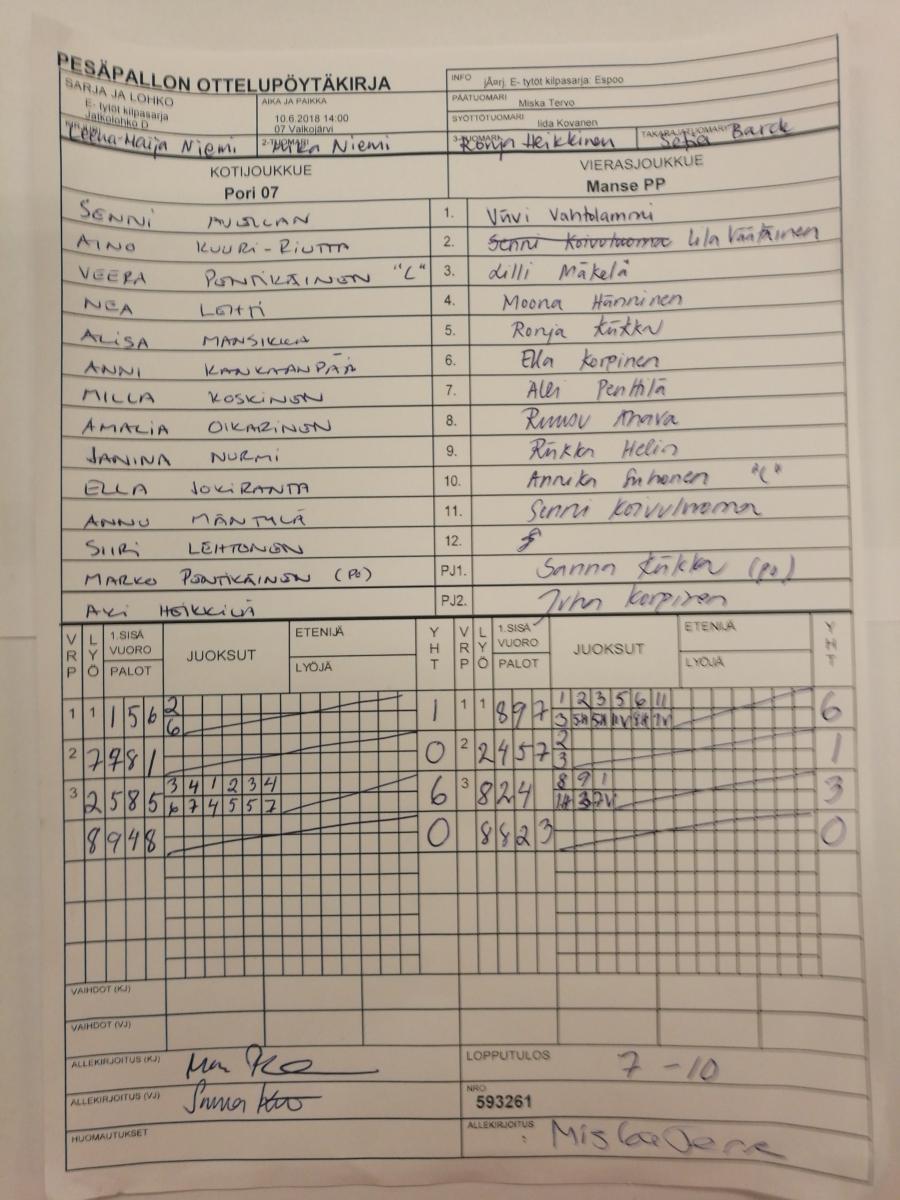 PESÄPALLON OTTELUPÖYTÄKIRJA
SARJA JA LOHKO
E- tytöt kilpasarja
Jatkolohko D
AIKA JA PAIKKA
10.6.2018 14:00
07 Valkojärvi
INFO jÄ¤rj. E- tytöt kilpasarja: Espoo
PÄÄTUOMARI Miska Tervo
SYÖTTÖTUOMARI Iida Kovanen
Leena-Maija Niemi
2-TUOMARI Mika Niemi
3-TUOMARI Ronja Heikkinen
TAKARAJATUOMARI Sefia Barck
KOTIJOUKKUE VIERASJOUKKUE
Pori 07 Manse PP
SENNI 1. Viivi Vahtolammi
AINO KUURI-RIUTTA 2. Senni Koivuluoma Lila Väätäinen
VEERA PONTIKÄINON "C" 3. Lilli Mäkelä
NEA LEHTI 4. Moona Hänninen
ALISA MANSIKKA 5. Ronja Kiikka
ANNI KANKAANPÄÄ 6. Ella Korpinen
MILLA KOSKINON 7. Alli Penttilä
AMALIA OIKARINON 8. Ruusu Ahava
JANINA NURMI 9. Riikka Helin
ELLA JOKIRANTA 10. Annika Suhonen "C"
ANNU MÄNTYLÄ 11. Senni Koivuluoma
SIIRI LEHTONON 12.
MARKO PONTIKÄINON (PO) PJ1. Sanna Kiikka (po)
AKI HEIKKILÄ PJ2. Juha Korpinen
VRP LYÖ 1.SISÄ VUORO PALOT JUOKSUT ETENIJÄ LYÖJÄ YHT VRP LYÖ 1.SISÄ VUORO PALOT JUOKSUT ETENIJÄ LYÖJÄ YHT
1 1 1 5 6 2 1 1 1 8 9 7 1 2 3 5 6 11 6
6 3 5H 5H 11V 8H 7V
2 7 7 8 1 0 2 2 4 5 7 2 1
3
3 2 5 8 5 3 4 1 2 3 4 6 3 8 2 4 8 9 1 3
6 7 4 5 5 7
8 9 4 8 0 8 8 2 3 0
VAIHDOT (KJ)
VAIHDOT (VJ)
ALLEKIRJOITUS (KJ)
LOPPUTULOS 7 - 10
ALLEKIRJOITUS (VJ)
NRO 593261
HUOMAUTUKSET
ALLEKIRJOITUS :